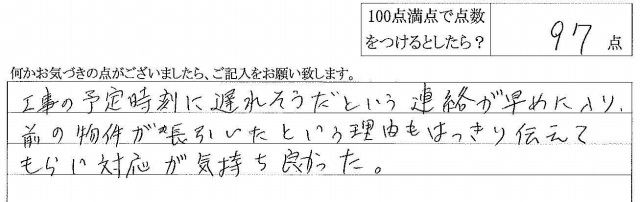 100点満点で点数
をつけるとしたら？ 97 点
何かお気づきの点がございましたら、ご記入をお願い致します。
工事の予定時刻に遅れそうだという連絡が早めに入り、
前の物件が長引いたという理由もはっきり伝えて
もらい対応が気持ち良かった。